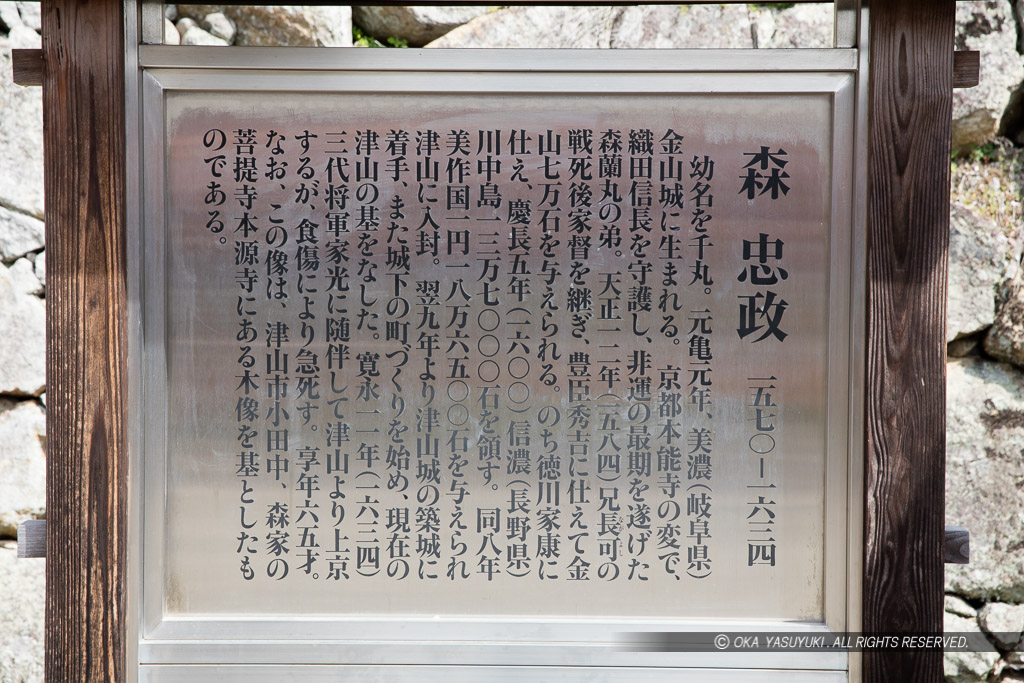 森 忠政 一五七〇―一六三四
幼名を千丸。元亀元年、美濃(岐阜県)
金山城に生まれる。京都本能寺の変で、
織田信長を守護し、非運の最期を遂げた
森蘭丸の弟。天正一二年(一五八四)兄長可の
戦死後家督を継ぎ、豊臣秀吉に仕えて金
山七万石を与えられる。のち徳川家康に
仕え、慶長五年(一六〇〇)信濃(長野県)
川中島一三万七〇〇〇石を領す。同八年
美作国一円一八万六五〇〇石を与えられ
津山に入封。翌九年より津山城の築城に
着手、また城下の町づくりを始め、現在の
津山の基をなした。寛永一一年(一六三四)
三代将軍家光に随伴して津山より上京
するが、食傷により急死す。享年六五才。
なお、この像は、津山市小田中、森家の
菩提寺本源寺にある木像を基としたも
のである。
© OKA YASUYUKI. ALL RIGHTS RESERVED.